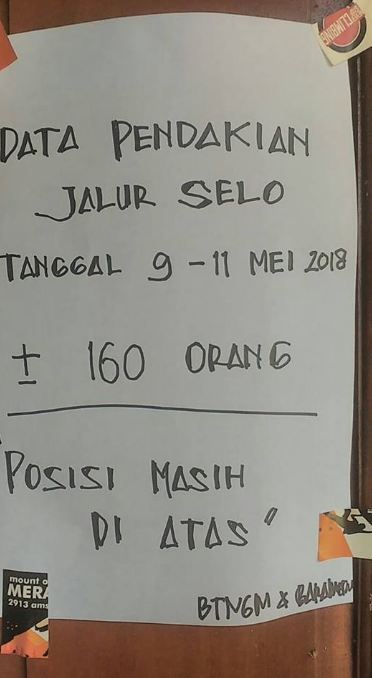 DATA PENDAKIAN
JALUR SELO
TANGGAL 9 - 11 MEI 2018
± 160 ORANG
POSISI MASIH
DI ATAS "
BTNGM &
mount o
MERA
2913 ams
CLIMBING